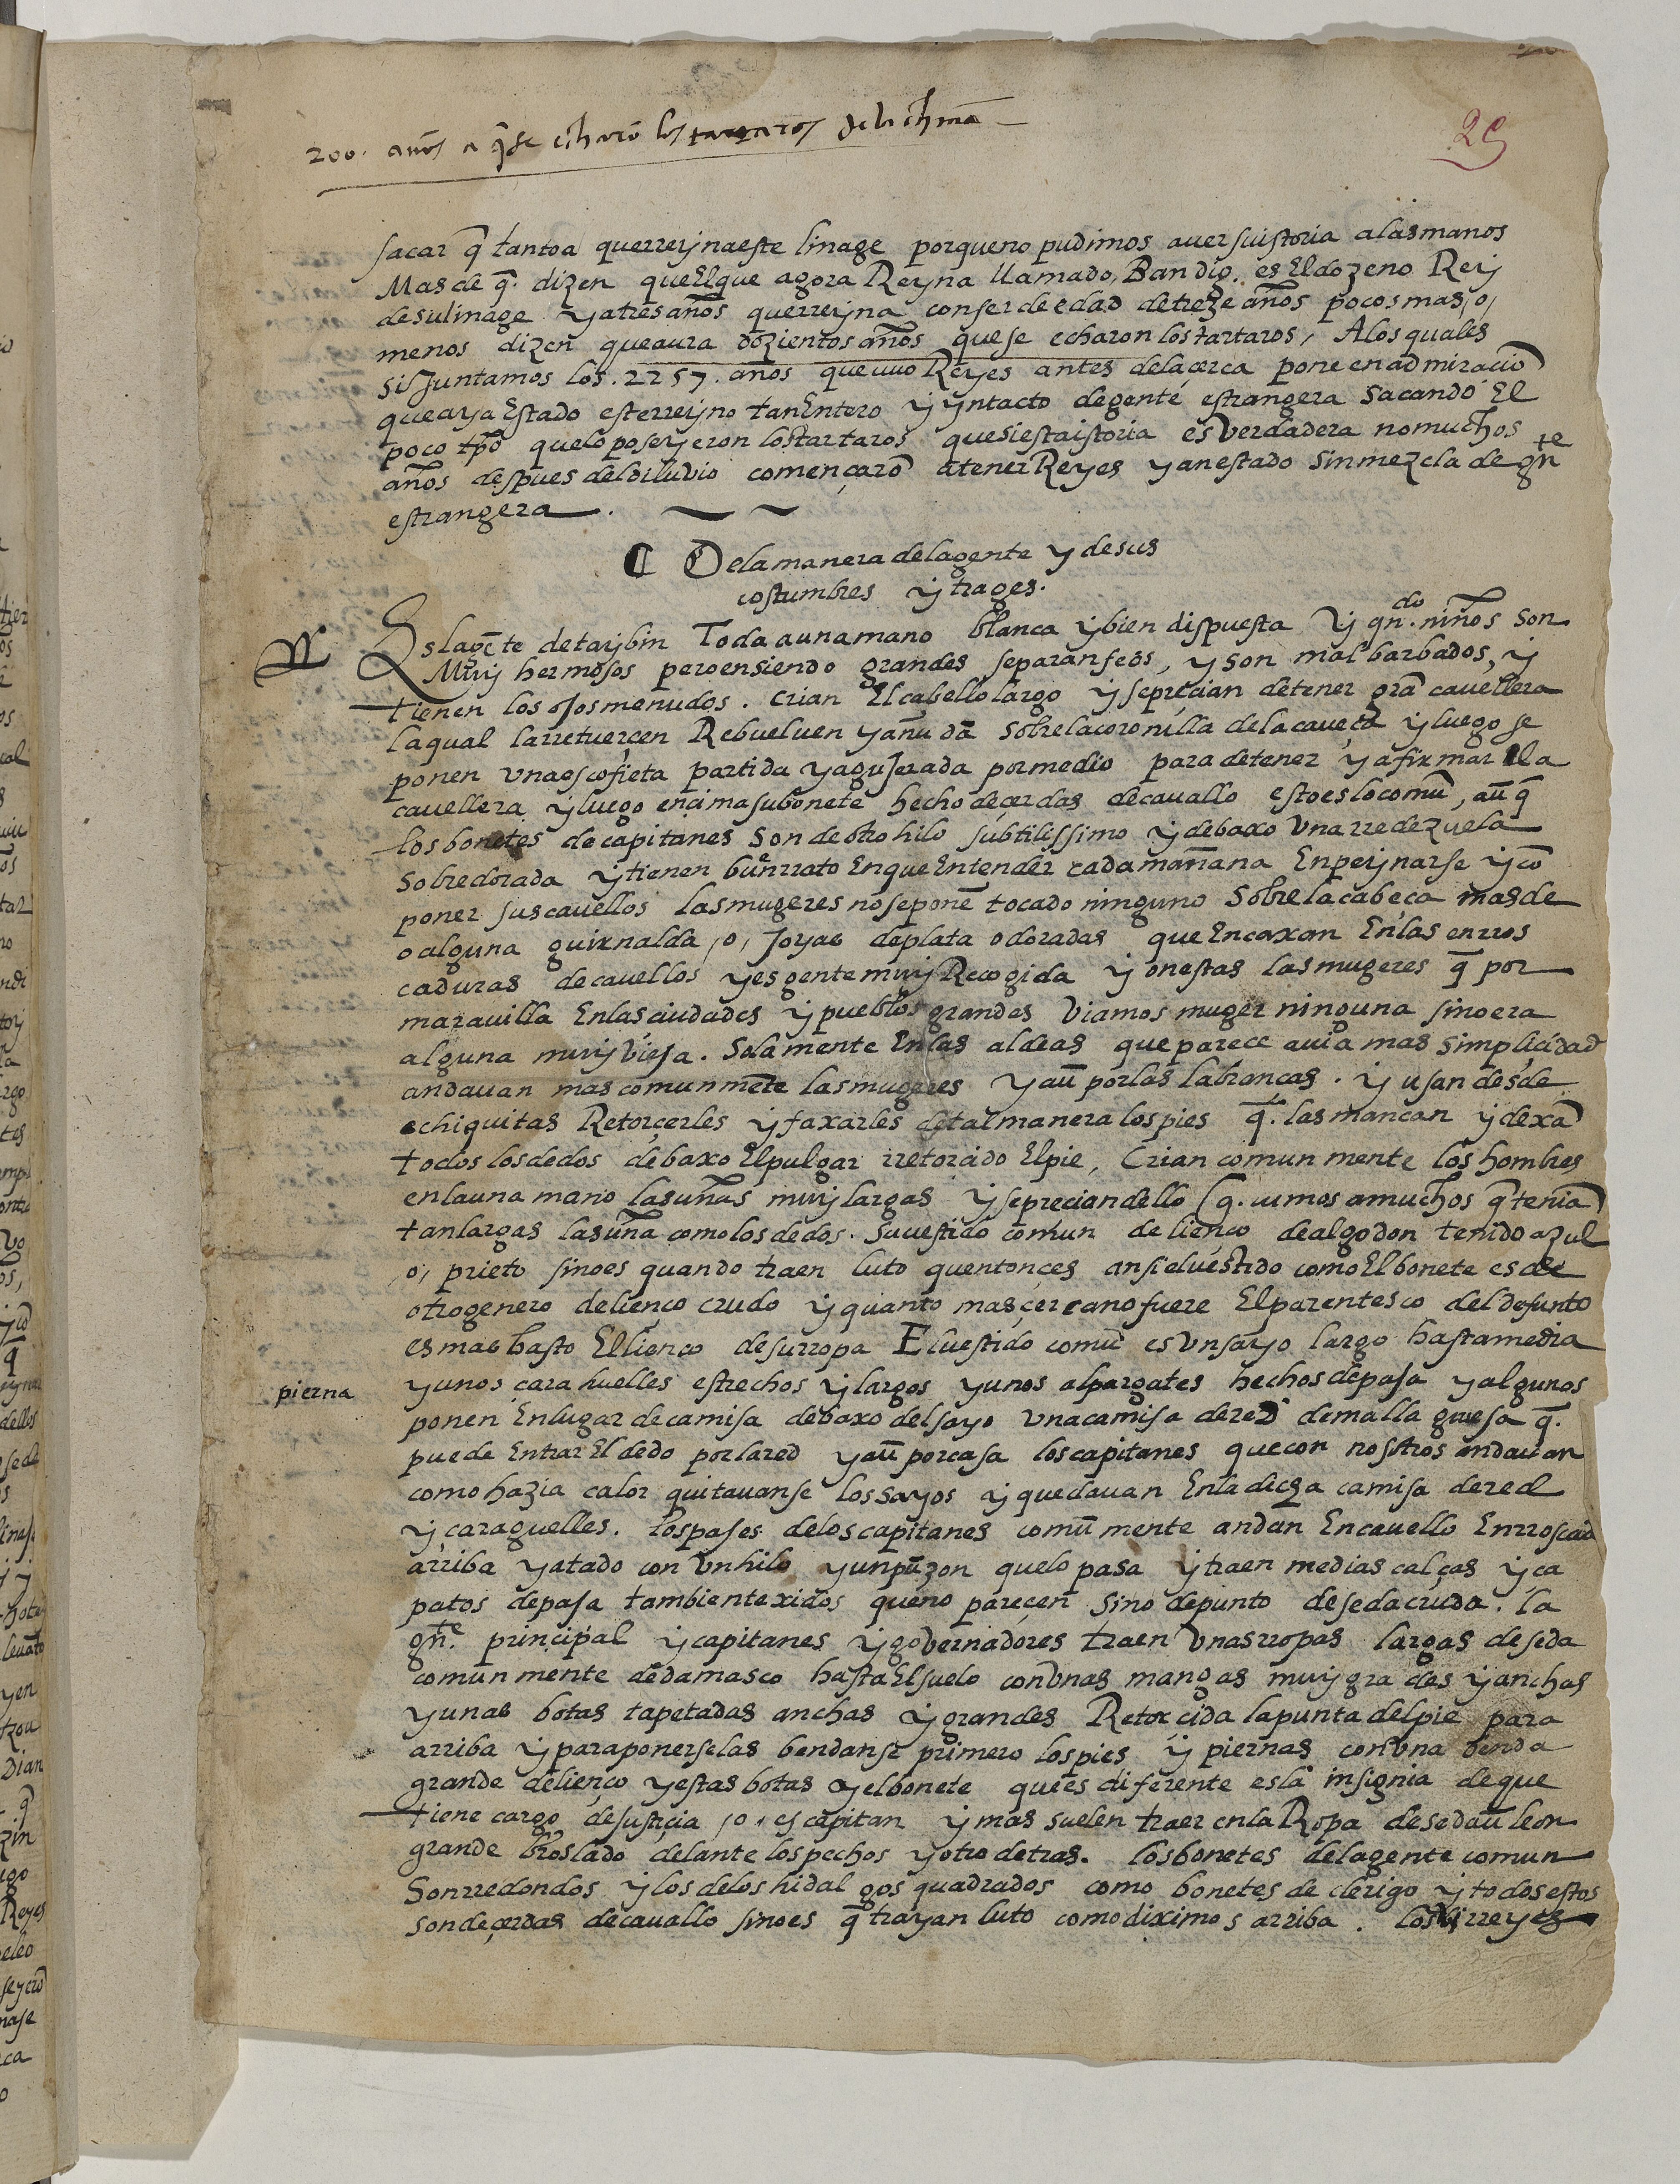 200. años a q̃ se echarõ los tartaros de la china
29
sacar q̃ tanto a que rreyna este linage porque no pudimos aver su istoria a las manos
Mas de q̃. dizen que El que agora Reyna llamado, Bandig. es El dozeno Rey
de su linage y a tres años que rreyna con ser de edad de treze años pocos mas, o,
menos dizen que aura dozientos años que se echaron los tartaros, A los quales
si Juntamos los. 2257. años que uuo Reyes antes de la çerca pone en admiraciõ
que aya Estado este rreyno tan Entero y yntacto de gente estrangera sacando El
poco tpõ que lo poseyeron los tartaros que si esta istoria es Verdadera no muchos
años despues del diluvio començarõ a tener Reyes y an estado sin mezcla de gñte
estrangera.
De la manera de la gente y de sus
costumbres y trages.
Es la gẽte de taybin Toda a una mano blanca y bien dispuesta Y qn.do niños son
Muy hermosos pero en siendo grandes se paran feos, y son mal barbados, y
tienen los oJos menudos. crian El cabello largo y se preçian de tener grã cavellera
la qual la rretuerçen Rebueluen y añudã sobre la coronilla de la caueça y luego se
ponen vna escofieta partida y aguJerada por medio para detener y afixmar lla
cauellera y luego ençima su bonete hecho de çerdas de cauallo esto es lo comũ, aũ q̃
los bonetes de capitanes son de otro hilo subtilissimo y debaxo Vna rredezuela
sobredorada y tienen buen rrato En que Entender cada mañana En peynarse y cõ
poner sus cauellos las mugeres no se ponẽ tocado ninguno Sobre la cabeça mas de
o alguna guirnalda, o, Joyas de plata o doradas que Encaxan En las enrros
caduras de cauellos y es gente muy Recogida y onestas las mugeres q̃ por
marauilla En las ciudades y pueblos grandes Viamos muger ninguna sino era
alguna muy VieJa. Sola mente En las aldeas que parece auia mas simpliçidad
andauan mas comunmẽte las mugeres y aũ por las labranças. y usan desde
chiquitas Retorçerles y faxarles de tal manera los pies q̃. las mancan y dexã
todos los dedos debaxo El pulgar rretorcido El pie, Crian comun mente los hombres
en la una mano las uñas muy largas y se preçian dello (q̃. uimos a muchos q̃ teniã)
tan largas las uña como los dedos. su uestido comun de lienço de algodon teñido azul
,o, prieto sino es quando traen luto quentonçes ansi el uestido como El bonete es de
otro genero de lienço crudo y quanto mas çercano fuere El parentesco del defunto
es mas basto El lienço de su rropa El uestido comũ es Vn sayo largo hasta media
pierna
y unos çarahuelles estrechos y largos y unos alpargates hechos de paJa y algunos
ponen En lugar de camisa debaxo del sayo vna camisa de red de malla gruesa q̃.
puede Entrar El dedo por la red y aũ por casa los capitanes que con nosotros andauan
como hazia calor quitauanse los sayos y quedauan En la decha camisa de red
y çaraguelles. Los paJes de los capitanes comũ mente andan En cauello Enrroscad
arriba y atado con Vn hilo y un pũzon que lo pasa y traen medias calças y ça
patos de paJa tambien texidos que no parecen sino de punto de seda cruda. la
gñte. principal y capitanes y governadores traen Vnas rropas largas de seda
comun mente de damasco hasta El suelo con Vnas mangas muy grades y anchas
y unas botas tapetadas anchas y grandes Retorcida la punta del pie para
arriba y para ponerselas bendanse primero los pies y piernas con Vna benda
grande de lienço y estas botas y el bonete que es diferente es la insignia de que
tiene cargo de justiçia, o, es capitan y mas suelen traer en la Ropa de seda ũ leon
grande broslado delante los pechos y otro detras. los bonetes de la gente comun
Son rredondos y los de los hidalgos quadrados como bonetes de clerigo y todos estos
son de çerdas de cauallo sino es q̃ trayan luto como diximos arriba. los Virreyes